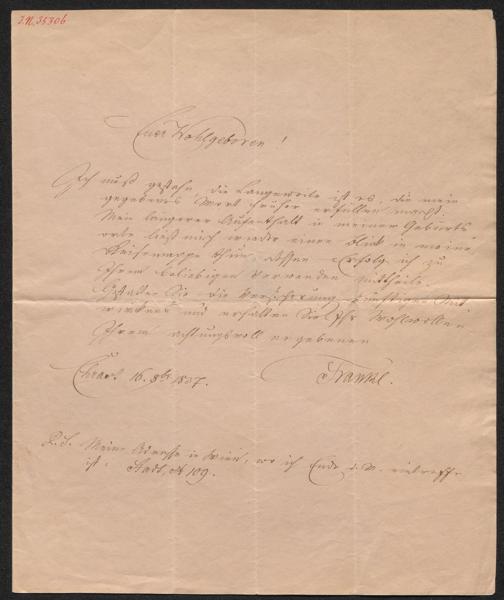 I.N. 35306
Euer Wohlgeboren!
Ich muß gestehn, die Langeweile ist es, die mein
gegebenes Wort früher erfüllen macht.
Mein längerer Aufenthalt in meinem Geburts
orte ließ mich wieder einen Blick in meine
Reisemappe thun, dessen Erfolg ich zu
Ihrem beliebigen Verwenden mittheile.
Gestatten Sie die Versicherung künftigen Mit
wirkens und erhalten Sie Ihr Wohlwollen
Ihrem achtungsvoll ergebenen
Chrast 16. 8br 1837. Frankl.
P.S. Meine Adresse in Wien, wo ich Ende d. M. eintreffe
ist: Stadt, N 109.